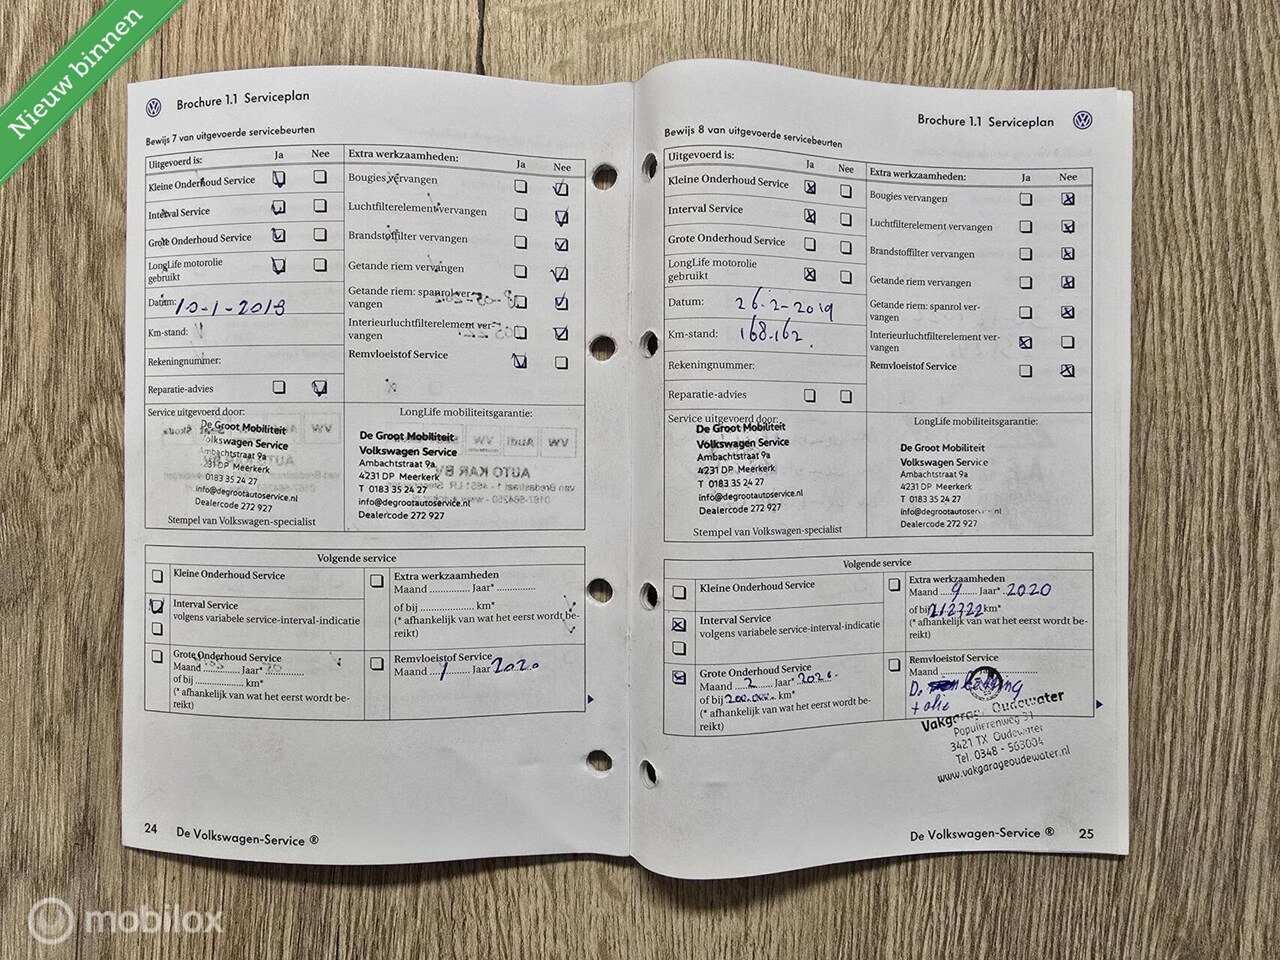 Nieuw binnen
Brochure 1.1 Serviceplan
Bewijs 7 van uitgevoerde servicebeurten
Uitgevoerd is: Ja Nee
Kleine Onderhoud Service
Interval Service
Grote Onderhoud Service
LongLife motorolie
gebruikt
Datum: 10-1-2018
Km-stand:
Rekeningnummer:
Reparatie-advies
Extra werkzaamheden: Ja Nee
Bougies vervangen
Luchtfilterelement vervangen
Brandstoffilter vervangen
Getande riem vervangen
Getande riem: spanrol ver-
vangen
Interieurluchtfilterelement ver-
vangen
Remvloeistof Service
Service uitgevoerd door:
De Groot Mobiliteit
Volkswagen Service
Ambachtstraat 9a
4231 DP Meerkerk
T 0183 35 24 27
info@degrootautoservice.nl
Dealercode 272 927
Stempel van Volkswagen-specialist
LongLife mobiliteitsgarantie:
De Groot Mobiliteit
Volkswagen Service
Ambachtstraat 9a
4231 DP Meerkerk
T 0183 35 24 27
info@degrootautoservice.nl
Dealercode 272 927
Volgende service
Kleine Onderhoud Service
Interval Service
volgens variabele service-interval-indicatie
Grote Onderhoud Service
Maand ........... Jaar* ...........
of bij ........... km*
(* afhankelijk van wat het eerst wordt be-
reikt)
Extra werkzaamheden
Maand ........... Jaar* ...........
of bij ........... km*
(* afhankelijk van wat het eerst wordt be-
reikt)
Remvloeistof Service
Maand 1 Jaar 2020
24 De Volkswagen-Service ®
Brochure 1.1 Serviceplan
Bewijs 8 van uitgevoerde servicebeurten
Uitgevoerd is: Ja Nee
Kleine Onderhoud Service
Interval Service
Grote Onderhoud Service
LongLife motorolie
gebruikt
Datum: 26-2-2019
Km-stand: 168.162.
Rekeningnummer:
Reparatie-advies
Extra werkzaamheden: Ja Nee
Bougies vervangen
Luchtfilterelement vervangen
Brandstoffilter vervangen
Getande riem vervangen
Getande riem: spanrol ver-
vangen
Interieurluchtfilterelement ver-
vangen
Remvloeistof Service
Service uitgevoerd door:
De Groot Mobiliteit
Volkswagen Service
Ambachtstraat 9a
4231 DP Meerkerk
T 0183 35 24 27
info@degrootautoservice.nl
Dealercode 272 927
Stempel van Volkswagen-specialist
LongLife mobiliteitsgarantie:
De Groot Mobiliteit
Volkswagen Service
Ambachtstraat 9a
4231 DP Meerkerk
T 0183 35 24 27
info@degrootautoservice.nl
Dealercode 272 927
Volgende service
Kleine Onderhoud Service
Interval Service
volgens variabele service-interval-indicatie
Grote Onderhoud Service
Maand 2 Jaar* 2020.
of bij 200.000. km*
(* afhankelijk van wat het eerst wordt be-
reikt)
Extra werkzaamheden
Maand 9 Jaar* 2020
of bij 212722 km*
(* afhankelijk van wat het eerst wordt be-
reikt)
Remvloeistof Service
Maand Jaar
+ olie
Vakgarage Oudewater
Populierenweg 31
3421 TX Oudewater
Tel. 0348 - 563004
www.vakgarageoudewater.nl
De Volkswagen-Service ® 25
mobilox